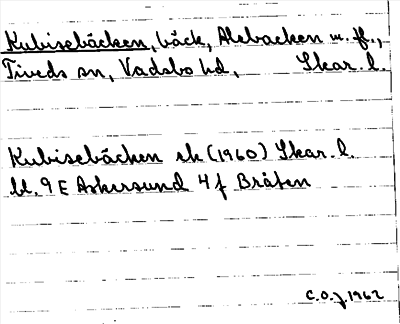 Kubisebäcken, bäck, Alebacken m. fl.,
Tiveds sn, Vadsbo hd, Skar. l.
Kubisebäcken ek (1960) Skar. l.
bl. 9 E Askersund 4 f Bråten
C.O.J. 1962